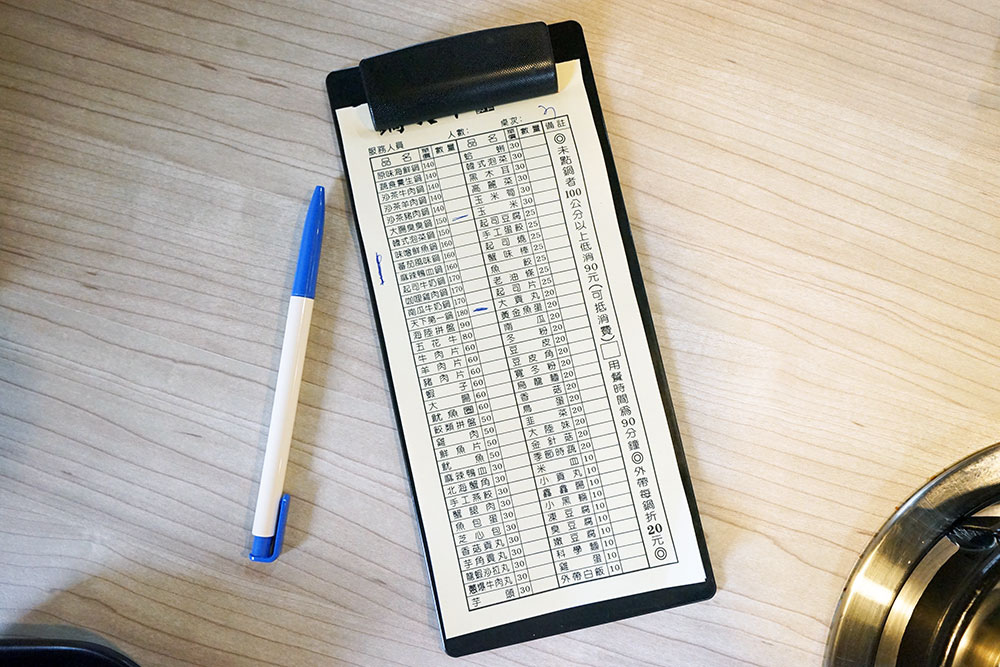 服務人員 人數： 桌次：
品名 單價 數量 品名 單價 數量 備註
原味海鮮鍋 140
蔬食養生鍋 140
沙茶牛肉鍋 140
沙茶羊肉鍋 140
沙茶豬肉鍋 140
大腸臭臭鍋 150
韓式泡菜鍋 150
味噌鮮魚鍋 160
番茄風味鍋 160
麻辣鴨血鍋 160
起司牛奶鍋 170
咖哩雞肉鍋 170
南瓜牛奶鍋 170
天下第一鍋 180
海陸拼盤 90
五花牛 80
牛肉片 60
羊肉片 60
豬肉片 60
蝦子 60
大腸 60
魷魚圈 60
餃類拼盤 50
雞肉 50
鮮魚片 50
魷魚 50
麻辣鴨血 30
北海蟹角 30
手工燕餃 30
蟹腿肉 30
魚包蛋 30
芝心包 30
香菇貢丸 30
芋角貢丸 30
龍蝦沙拉丸 30
爆爆牛肉丸 30
芋頭 30
蛤蜊 30
韓式泡菜 30
黑木耳 30
高麗菜 30
玉米筍 30
玉米 30
起司豆腐 25
手工蛋餃 25
起司燒 25
蟹味棒 25
魚餃 25
老油條 25
起司片 25
大貢丸 20
黃金魚蛋 20
南瓜 20
冬粉 20
豆皮角 20
寬冬粉 20
烏龍麵 20
香菇 20
鳥蛋 20
韭菜 20
大陸妹 20
金針菇 20
季節時蔬 20
米血 10
小貢丸 10
鑫鑫腸 10
小黑輪 10
凍豆腐 10
臭豆腐 10
嫩豆腐 10
科學麵 10
雞蛋 10
外帶白飯 10
◎未點鍋者100公分以上低消90元(可抵消費)□用餐時間為90分鐘◎外帶每鍋折20元◎